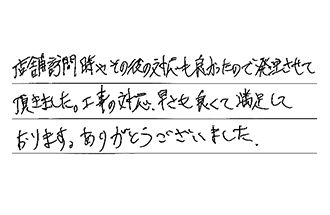 店舗訪問時やその後の対応も良かったので発注させて
頂きました。工事の対応、早さも良くて満足して
おります。ありがとうございました.